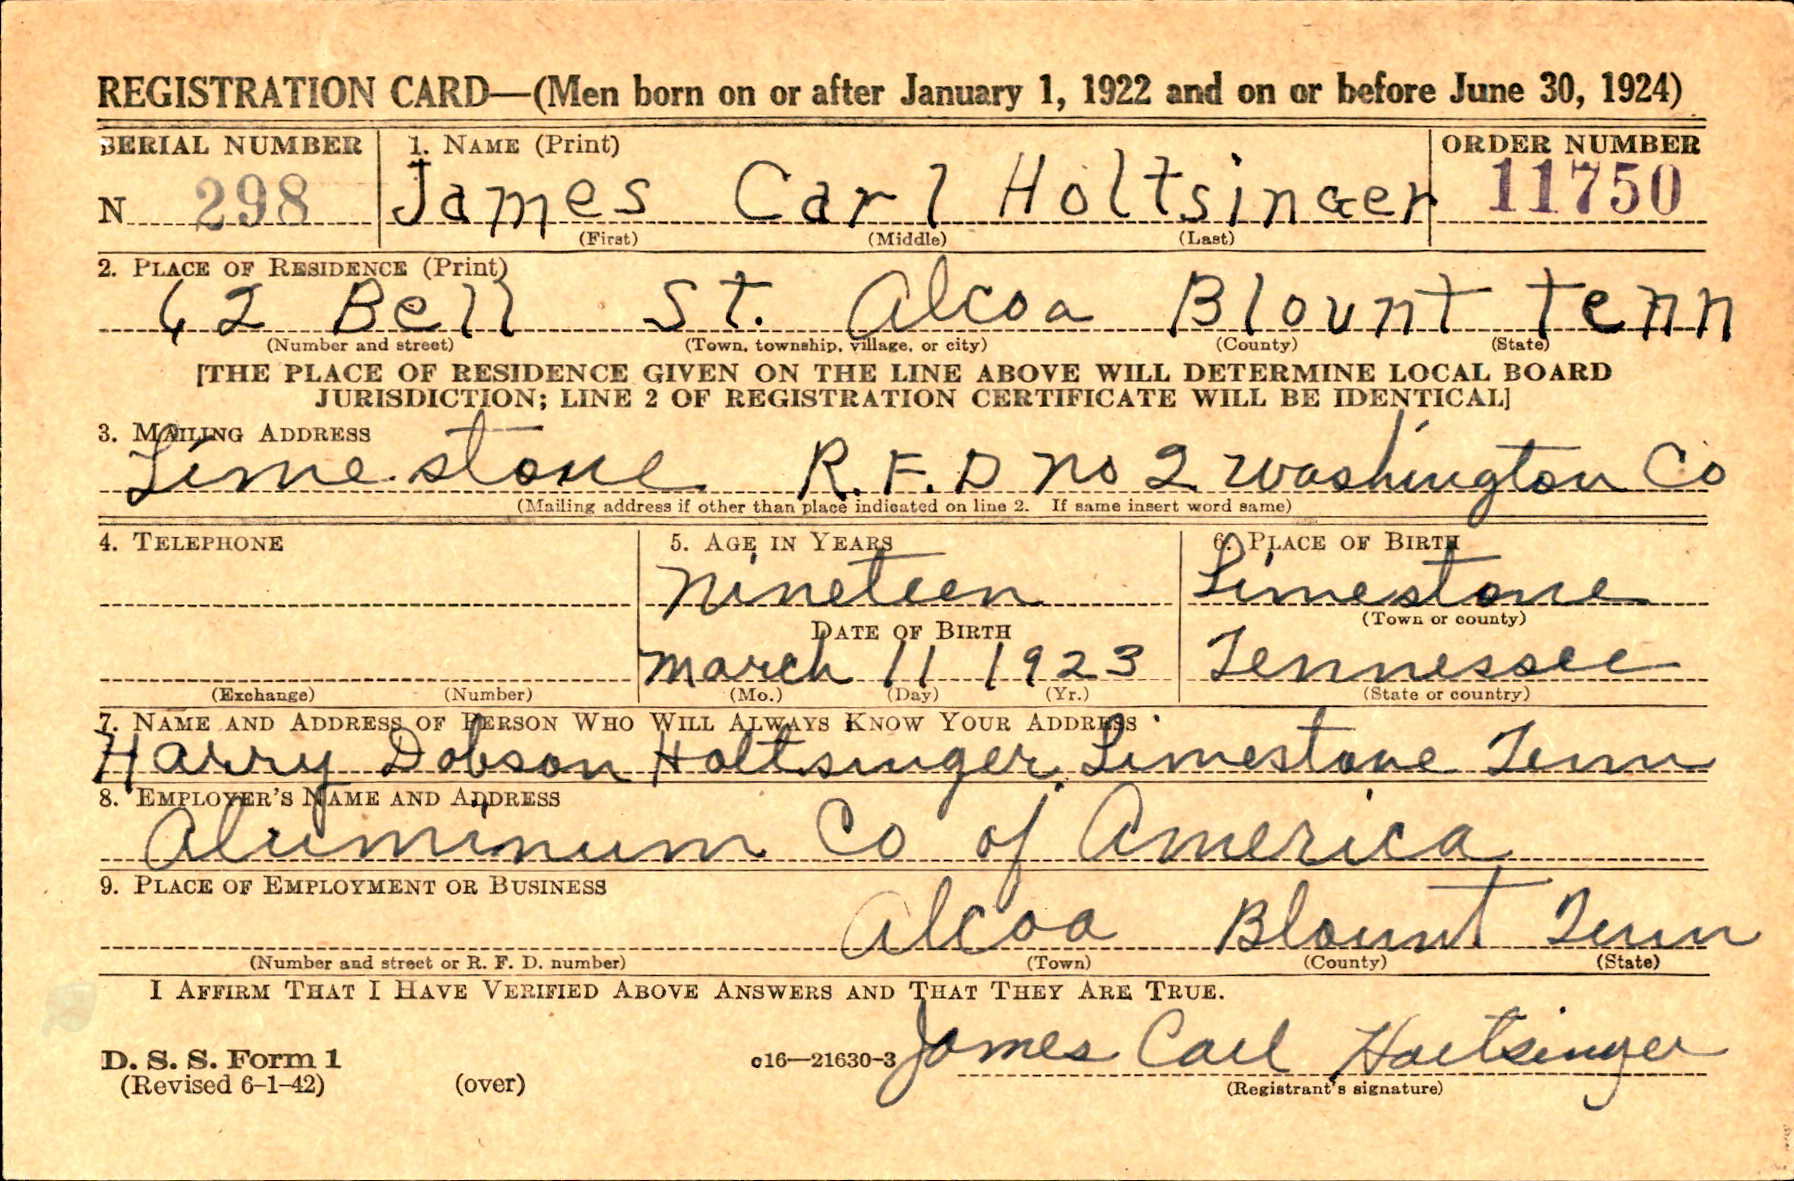 REGISTRATION CARD—(Men born on or after January 1, 1922 and on or before June 30, 1924)
SERIAL NUMBER 1. NAME (Print) ORDER NUMBER
N 298 James Carl Holtsinger 11750
(First) (Middle) (Last)
2. PLACE OF RESIDENCE (Print)
62 Bell St. Alcoa Blount Tenn
(Number and street) (Town, township, village, or city) (County) (State)
[THE PLACE OF RESIDENCE GIVEN ON THE LINE ABOVE WILL DETERMINE LOCAL BOARD
JURISDICTION; LINE 2 OF REGISTRATION CERTIFICATE WILL BE IDENTICAL]
3. MAILING ADDRESS
Limestone R.F.D no 2 Washington Co
(Mailing address if other than place indicated on line 2. If same insert word same)
4. TELEPHONE 5. AGE IN YEARS 6. PLACE OF BIRTH
Nineteen Limestone
(Town or county)
DATE OF BIRTH
March 11 1923 Tennessee
(Exchange) (Number) (Mo.) (Day) (Yr.) (State or country)
7. NAME AND ADDRESS OF PERSON WHO WILL ALWAYS KNOW YOUR ADDRESS
Harry Dobson Holtsinger Limestone Tenn
8. EMPLOYER'S NAME AND ADDRESS
Aluminum Co of America
9. PLACE OF EMPLOYMENT OR BUSINESS
Alcoa Blount Tenn
(Number and street or R. F. D. number) (Town) (County) (State)
I AFFIRM THAT I HAVE VERIFIED ABOVE ANSWERS AND THAT THEY ARE TRUE.
D. S. S. Form 1 c16—21630-3 James Carl Holtsinger
(Revised 6-1-42) (over) (Registrant's signature)